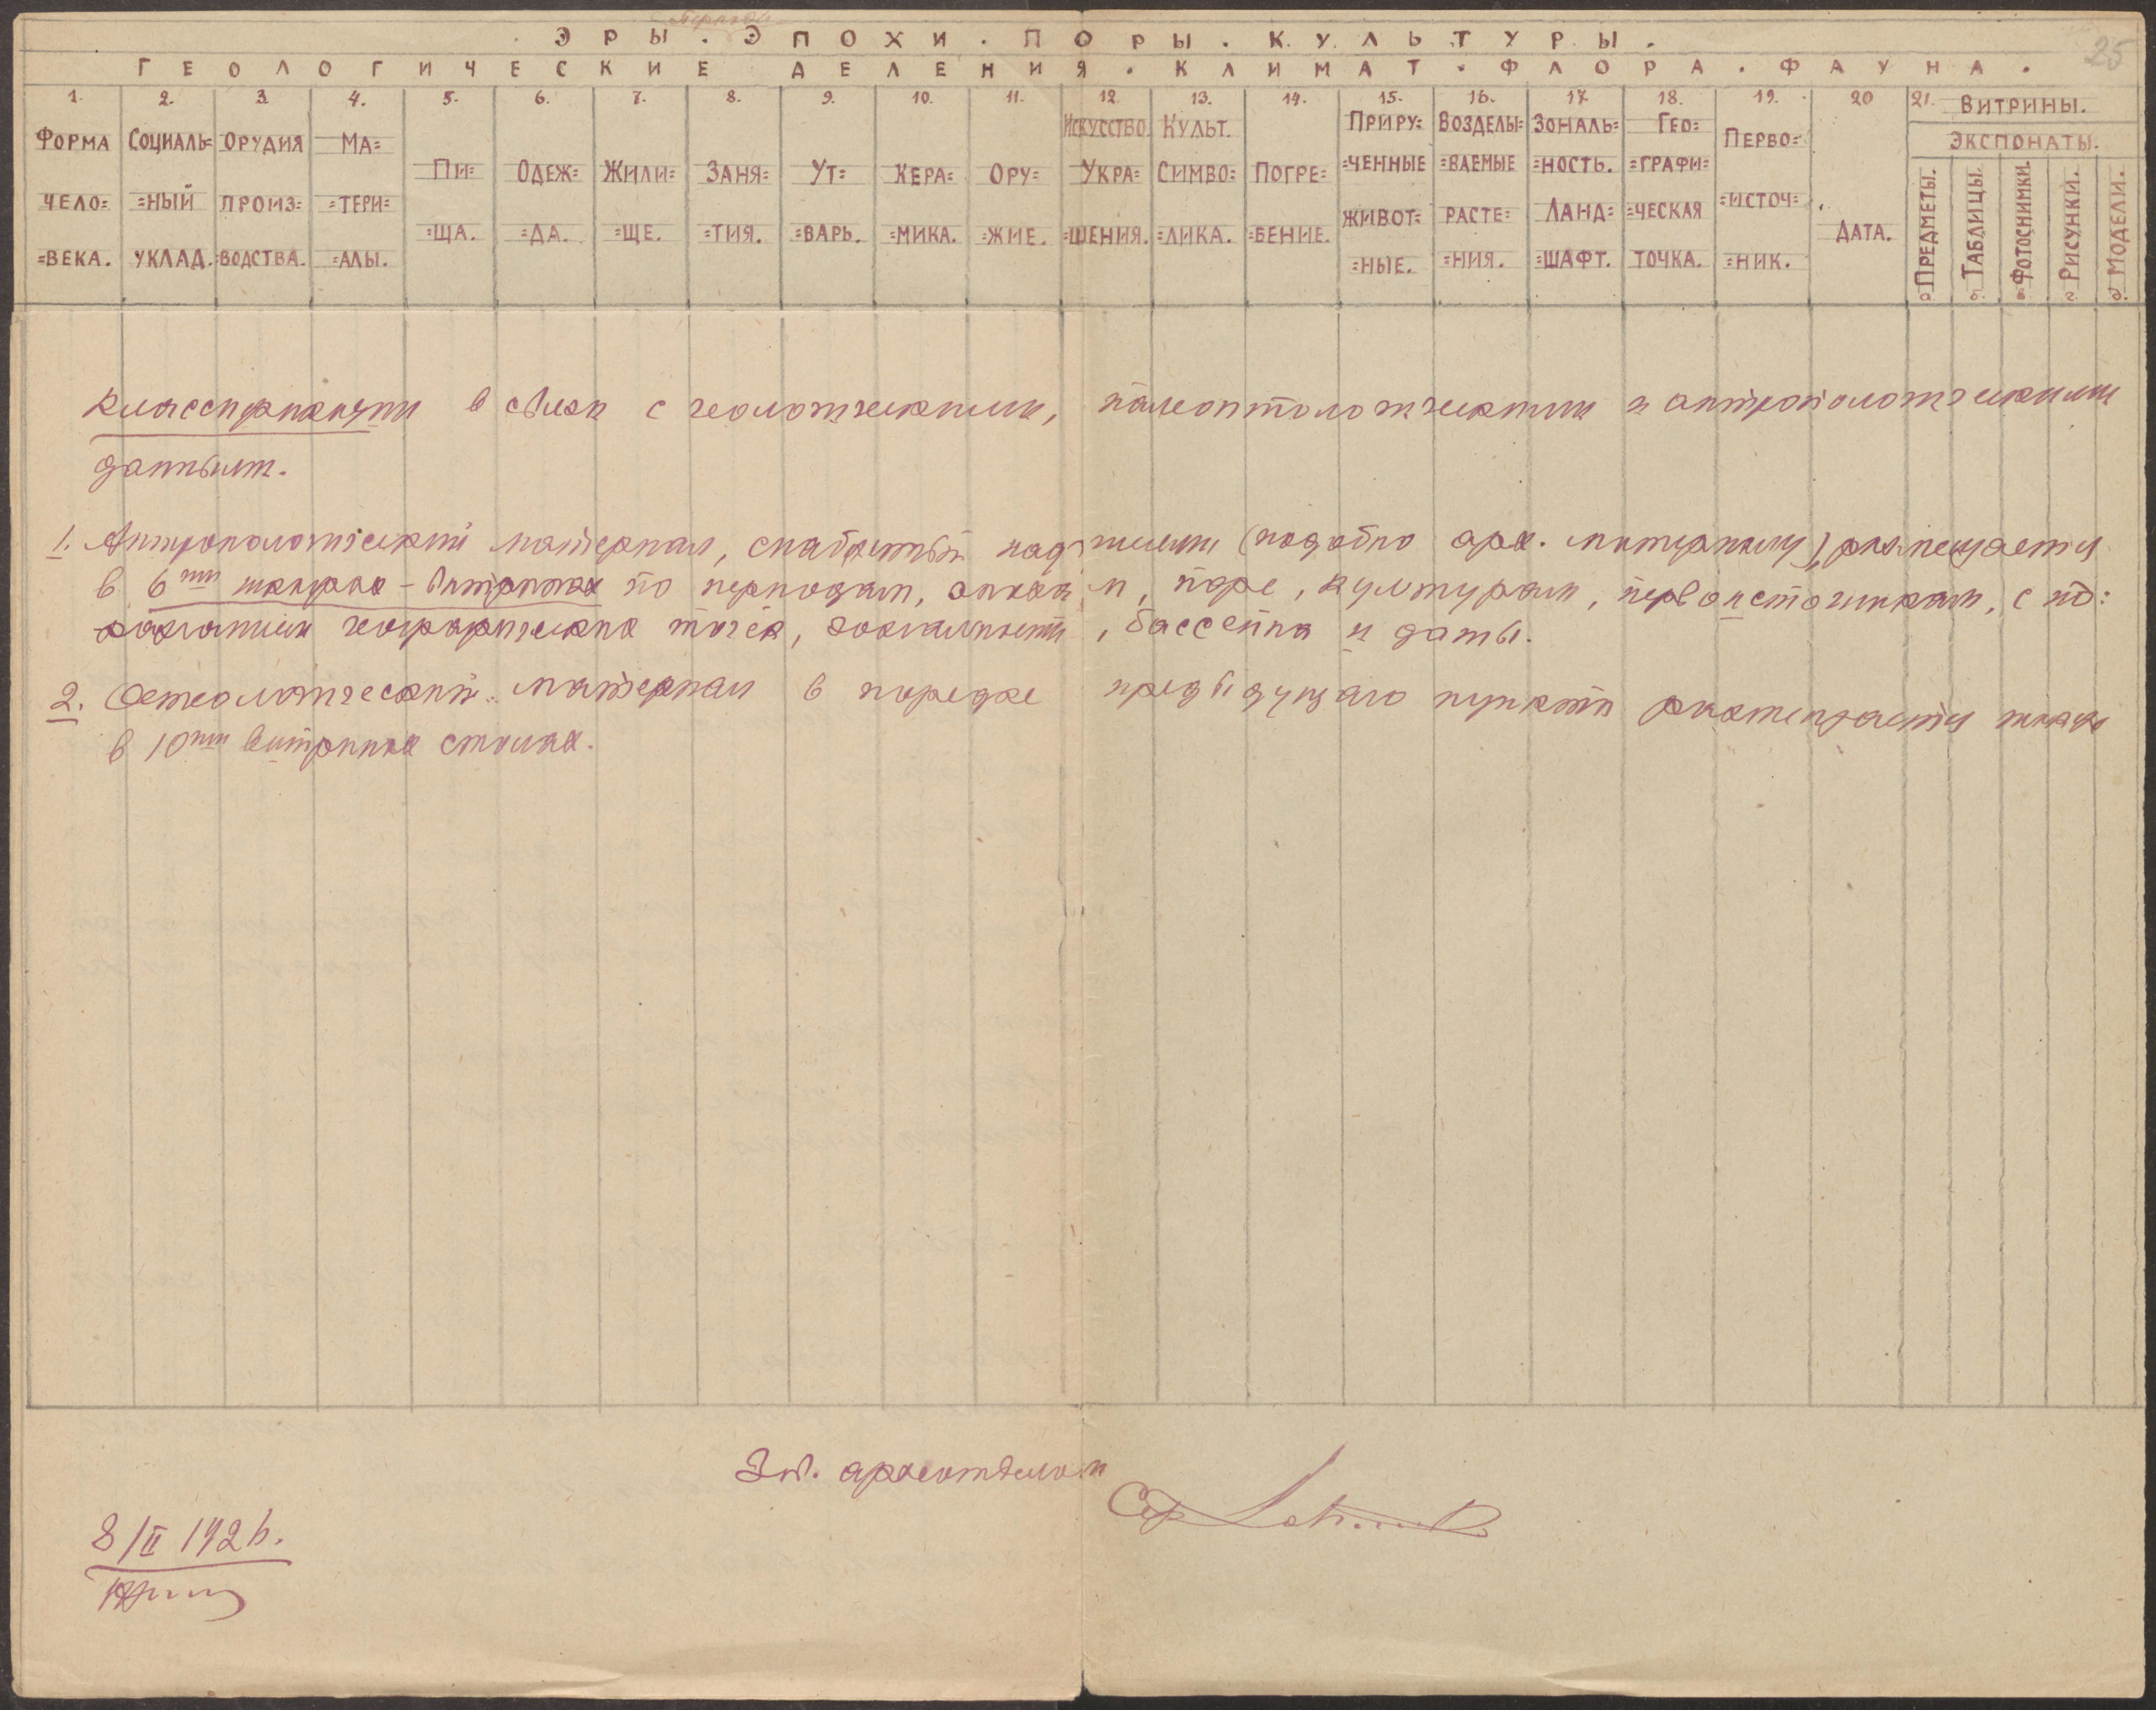 Периоды
ЭРЫ. ЭПОХИ. ПОРЫ. КУЛЬТУРЫ.
25
ГЕОЛОГИЧЕСКИЕ ДЕЛЕНИЯ. КЛИМАТ. ФЛОРА. ФАУНА.
1. ФОРМА ЧЕЛО= =ВЕКА.
2. СОЦИАЛЬ= =НЫЙ УКЛАД.
3. ОРУДИЯ ПРОИЗ= ВОДСТВА.
4. МА= =ТЕРИ= =АЛЫ.
5. ПИ= =ЩА.
6. ОДЕЖ= =ДА.
7. ЖИЛИ= =ЩЕ.
8. ЗАНЯ= =ТИЯ.
9. УТ= =ВАРЬ.
10. КЕРА= =МИКА.
11. ОРУ= =ЖИЕ.
12. ИСКУССТВО. УКРА= =ШЕНИЯ.
13. КУЛЬТ. СИМВО= =ЛИКА.
14. ПОГРЕ= =БЕНИЕ.
15. ПРИРУ= =ЧЕННЫЕ ЖИВОТ= =НЫЕ.
16. ВОЗДЕЛЫ= =ВАЕМЫЕ РАСТЕ= =НИЯ.
17. ЗОНАЛЬ= =НОСТЬ. ЛАНД= =ШАФТ.
18. ГЕО= =ГРАФИ= =ЧЕСКАЯ ТОЧКА.
19. ПЕРВО= =ИСТОЧ= =НИК.
20 ДАТА.
21. ВИТРИНЫ.
ЭКСПОНАТЫ.
а ПРЕДМЕТЫ.
б. ТАБЛИЦЫ.
в. ФОТОСНИМКИ.
г. РИСУНКИ.
д. МОДЕЛИ.
классификации в связи с геологическими, палеонтологическими и антропологическими
данными.
1. Антропологический материал, снабженный надписями (подобно арх. материалу), размещается
в 6ти шкафах-витринах по периодам, эпохам, поре, культурам, первоисточникам, с
географических точек, зональности, бассейна и даты.
2. Остеологический материал в порядке предыдущаго пункта размещается также
в 10ти витринах столах.
Зав. археотделом
8/II 1926.